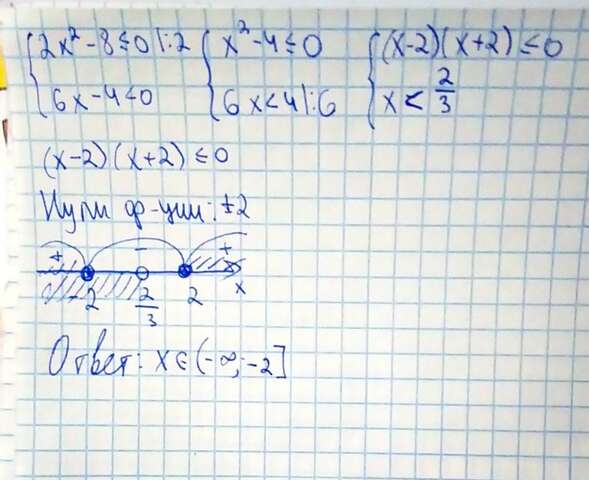 2x² - 8 ≤ 0 |:2 { x² - 4 ≤ 0 { (x-2)(x+2) ≤ 0
6x - 4 < 0 6x < 4 |:6 x < 2/3
(x-2)(x+2) ≤ 0
Нули ф-ции: ±2
+ - +
-2 2/3 2 x
Ответ: x ∈ (-∞; -2]